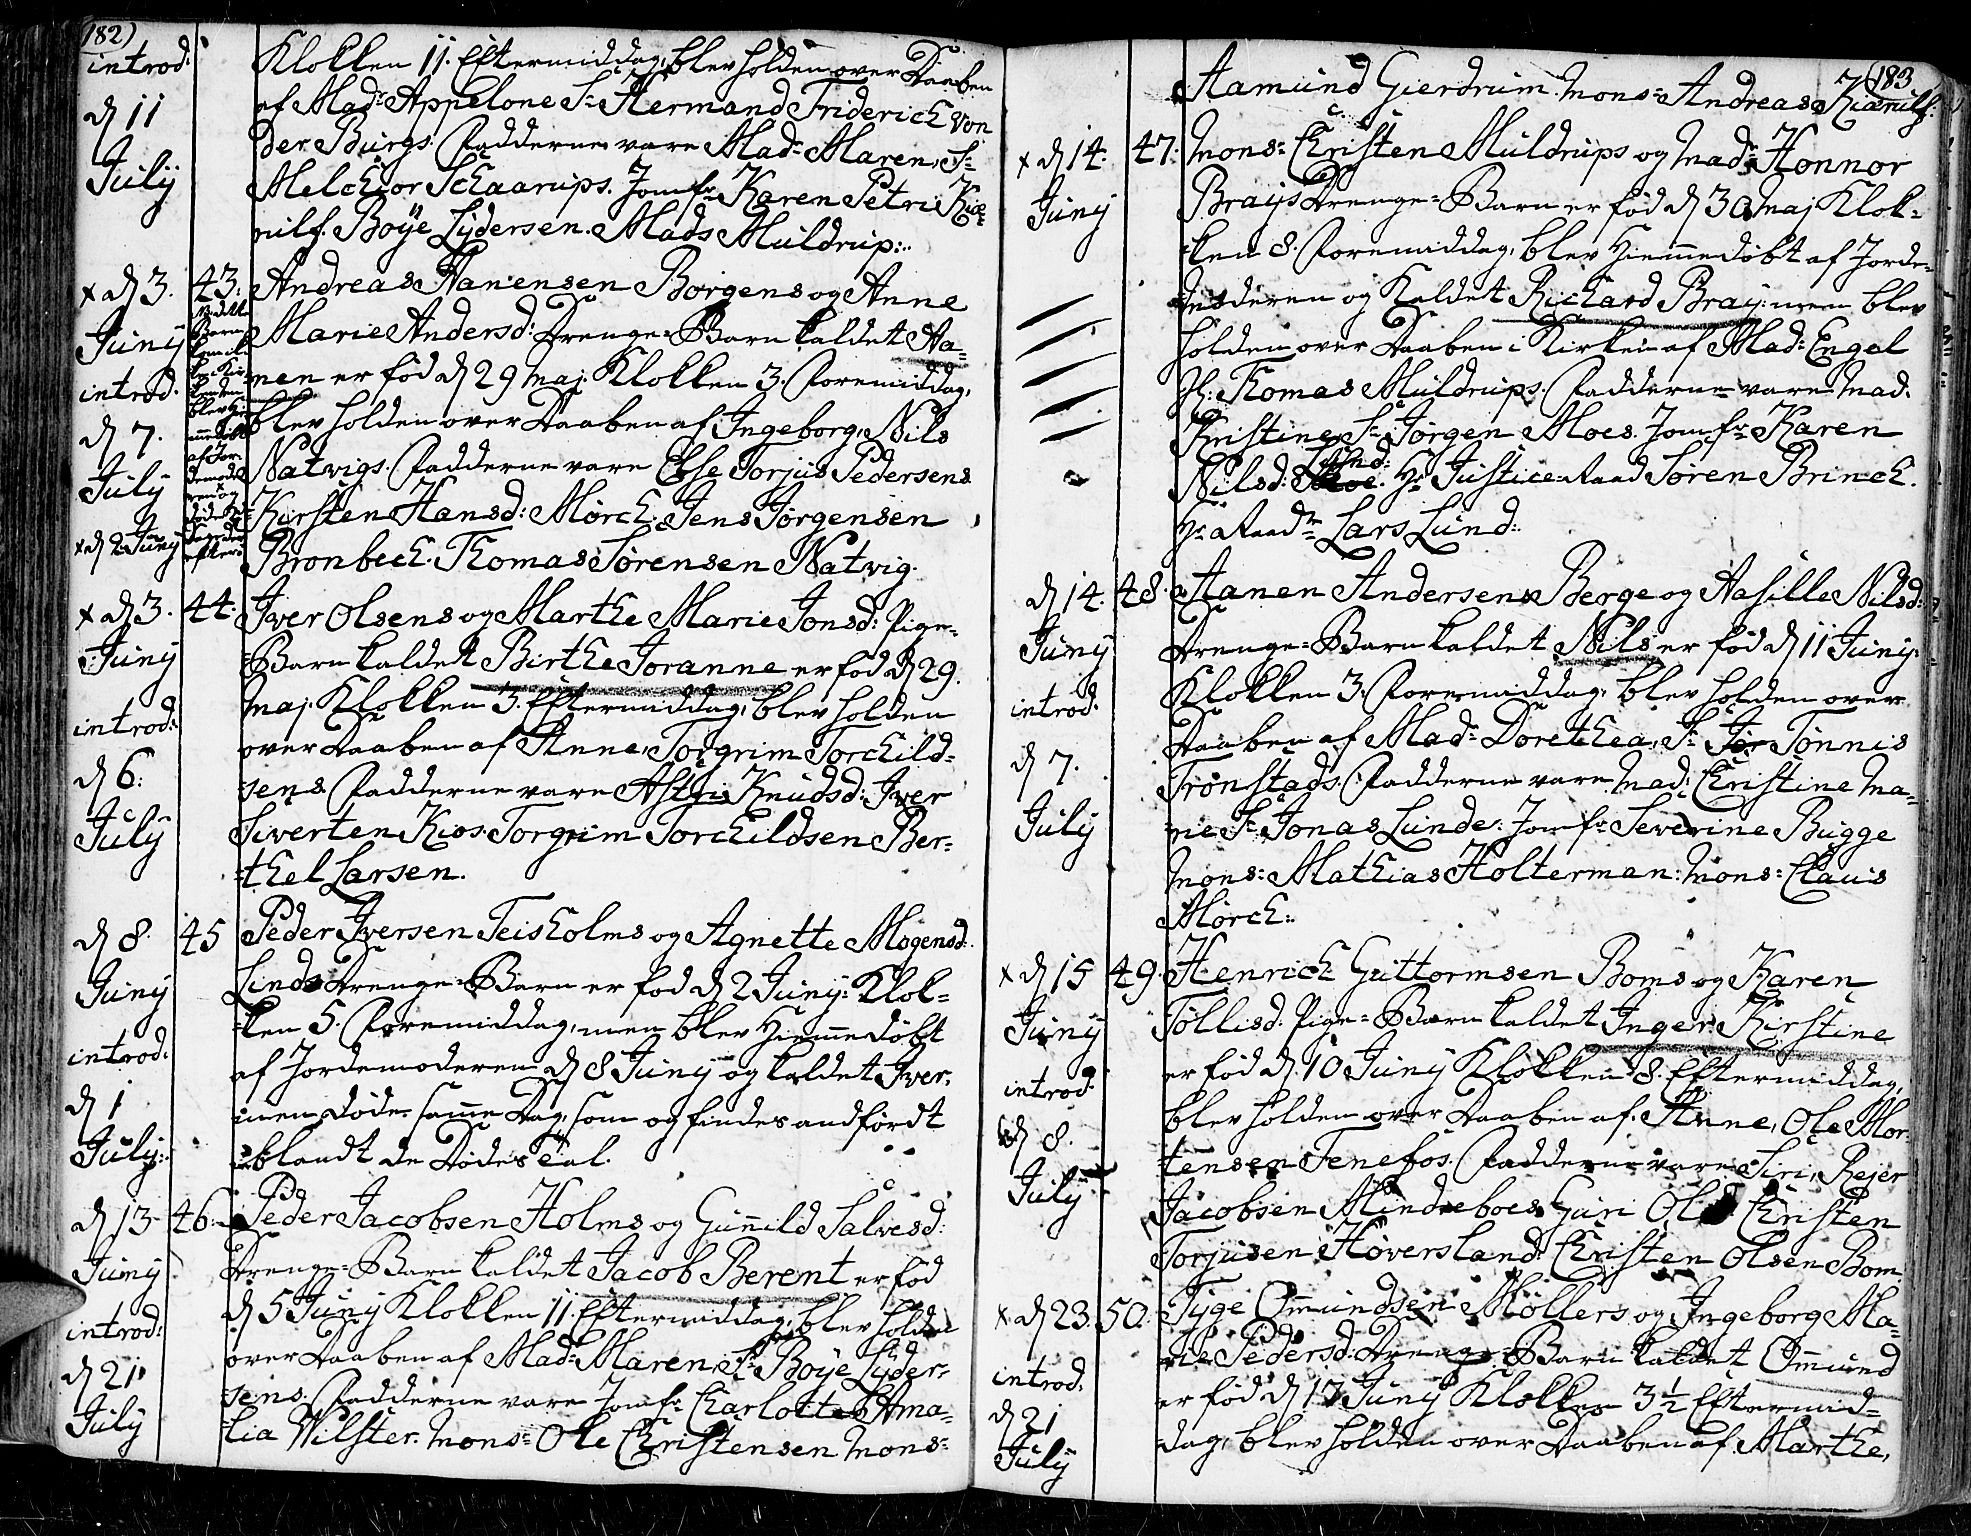 182)
introd:
d 11
July
Klokken 11. Eftermiddag, blev holden over Daaben
af Madr: Appelone Sr: Hermand Friderich von
der Burgs. Fadderne vare Mad: Maren, Sr:
Melchior Schaarups. Jomfr: Karen Petri Kiæ-
nilf. Boye Lydersen. Mads Muldrup:.
x d 3. 43.
Juny
introd.
d 7.
July
x d 2 Juny
Andreas Aanensen Borgens og Anne
Marie Andersd: Drenge-Barn kaldet Aa-
nen er fød d 29 Maj. Klokken 3. Formiddag,
blev holden over Daaben af Ingeborg, Nils
Natvigs. Fadderne vare Else Torjus Pedersens
Kirsten Hansd: Mørch. Jens Jørgensen
Bronbech. Thomas Sørensen Natvig.
x d 3. 44.
Juny
introd:
d 6.
July
Iver Olsens og Marthe Marie Jonsd: Pige-
Barn kaldet Birthe Joranne er fød d 29.
Maj. Klokken 3. Eftermiddag, blev holden
over Daaben af Anne, Torgrim Torchild-
sens. Fadderne vare Astri Knudsd: Iver
Siverten Kios. Torgrim Torchildsen Ber-
-thel Larsen.
d 8. 45
Juny
introd.
d 1
July:
Peder Iversen Teisholms og Agnette Mogensd:
Linds Drenge-Barn er fød d 2 Juny: Klok-
-ken 5. Foremiddag, men blev Hiemmedøbt
af Jordemoderen d 8 Juny og kaldet Iver,
men døde samme Dag, som og findes andførdt
iblandt de Dødes Tal.
d 13 46.
Juny
introd:
d 21.
July
Peder Jacobsen Holms og Gunnild Salvesd:
Drenge-Barn kaldet Jacob Berent er fød
d 5 Juny Klokken 11. Eftermiddag, blev holden
over Daaben af Mad: Maren, Sr: Boye Lyder-
sens. Fadderne vare Jomfr: Charlotte Ama-
lia Wilster. Mons: Ole Christensen Mons:
183
Aamund Gierdrum. Mons: Andreas Kiænilf.
x d 14. 47.
Juny
Mons: Christen Muldrups og Mad: Honnor
Brays Drenge-Barn er fød d 30 Maj Klok-
-ken 8. Foremiddag, blev Hiemmedøbt af Jorde-
moderen og Kaldet Richard Bray: men blev
holden over Daaben i Kirken af Mad: Engel
Hr: Thomas Muldrups. Fadderne vare Mad.
Kristine Sr: Jørgen Moes. Jomfr: Karen
Nilsd: Lund: Hr: Justice-Raad Søren Brinch.
Hr: Raadm: Lars Lund:
d 14. 48.
Juny
introd.
d 7.
July
Aanen Andersens Berge og Aasille Nilsd:
Drenge-Barn kaldet Nils er fød d 11 Juny.
Klokken 3. Foremiddag, blev holden over
Daaben af Mad: Dorethea, Sr: Tønnis
Trønstads. Fadderne vare Mad: Christine Ma-
rie Sr: Jonas Lunde. Jomfr: Severine Bugge
Mons: Mathias Holterman. Mons: Claus
Mørch:.
x d 15 49.
Juny
introd.
d 8.
July
Henrich Guttormsen Boms og Karen
Tøllisd: Pige-Barn kaldet Inger Kirstine
er fød d 10 Juny Klokken 8. Eftermiddag,
blev holden over Daaben af Anne, Ole Mor-
tensen Tenefos. Fadderne vare Siri, Rejer
Jacobsen Mindeboes Guri Olsd Christen
Torjusen Høversland. Christen Olsen Bom.
x d 23. 50.
introd.
d 21
July
Tyge Omundsen Møllers og Ingeborg Ma-
rie Pedersd: Drenge-Barn kaldet Omund
er fød d 17 Juny Klokken 3 1/2 Eftermid-
dag, blev holden over Daaben af Marthe,